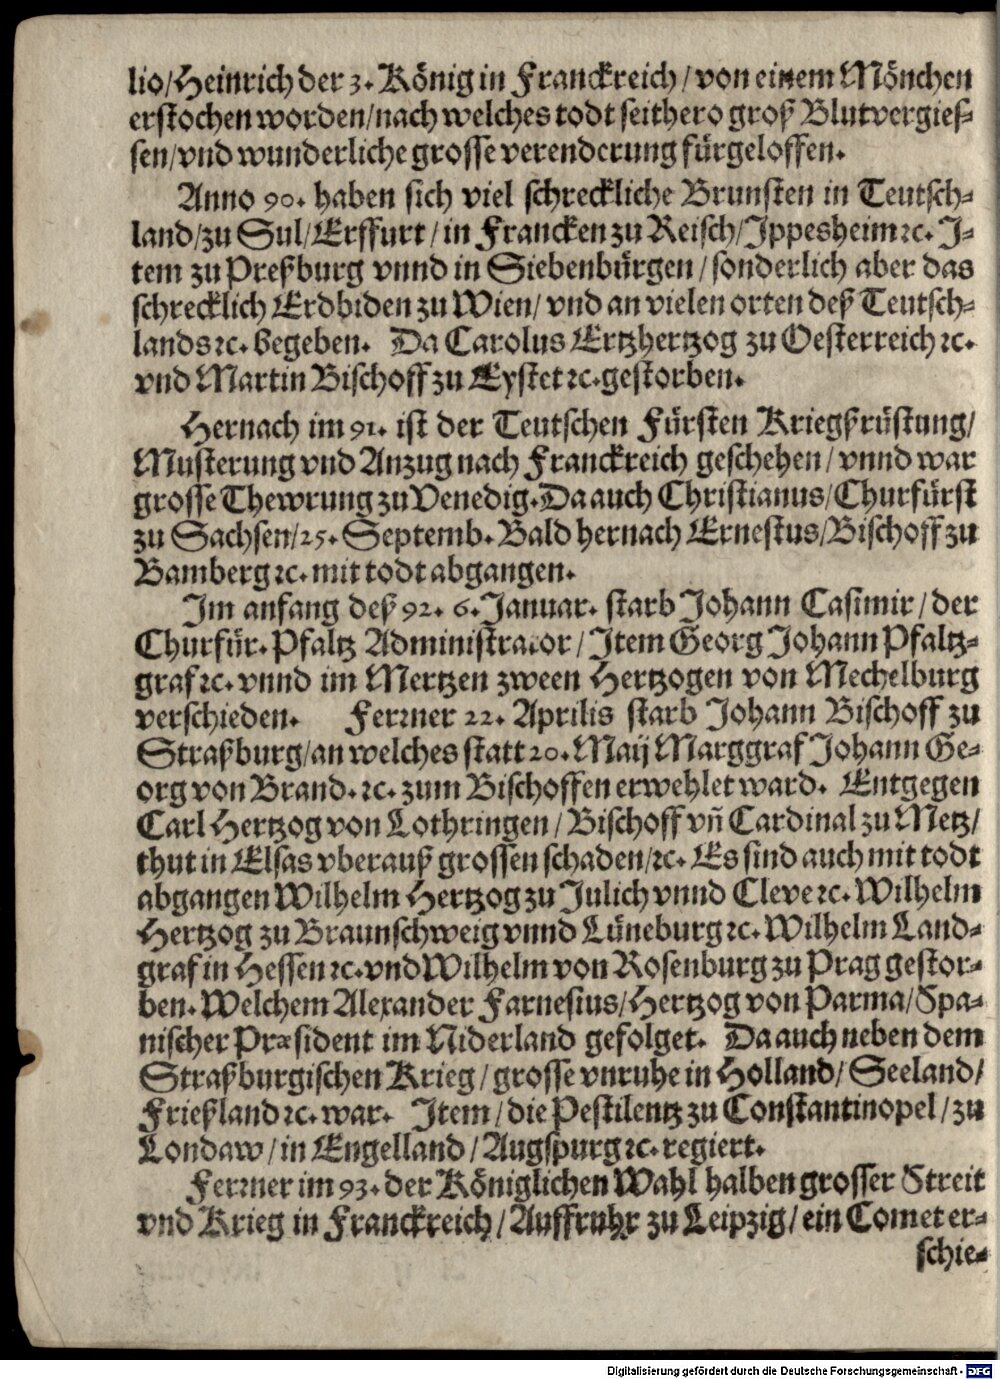 lio/Heinrich der 3. König in Franckreich/von einem Mönchen
erstochen worden/nach welches todt seithero groß Blutvergies-
sen/vnd wunderliche grosse verenderung fürgeloffen.
Anno 90. haben sich viel schreckliche Brunsten in Teutsch-
land/zu Sul/Erffurt/in Francken zu Reisch/Jppesheim ꝛc. J-
tem zu Preßburg vnnd in Siebenbürgen/sonderlich aber das
schrecklich Erdbiden zu Wien/vnd an vielen orten deß Teutsch-
lands ꝛc. begeben. Da Carolus Ertzhertzog zu Oesterreich ꝛc.
vnd Martin Bischoff zu Eystet ꝛc. gestorben.
Hernach im 91. ist der Teutschen Fürsten Kriegßrüstung/
Musterung vnd Anzug nach Franckreich geschehen/vnnd war
grosse Thewrung zu Venedig. Da auch Christianus/Churfürst
zu Sachsen/25. Septemb. Bald hernach Ernestus/Bischoff zu
Bamberg ꝛc. mit todt abgangen.
Jm anfang deß 92. 6. Januar. starb Johann Casimir/der
Churfür. Pfaltz Administrator/Jtem Georg Johann Pfaltz-
graf ꝛc. vnnd im Mertzen zween Hertzogen von Mechelburg
verschieden. Ferrner 22. Aprilis starb Johann Bischoff zu
Straßburg/an welches statt 20. Maij Marggraf Johann Ge-
org von Brand. ꝛc. zum Bischoffen erwehlet ward. Entgegen
Carl Hertzog von Lothringen/Bischoff vñ Cardinal zu Metz/
thut in Elsas vberauß grossen schaden/ꝛc. Es sind auch mit todt
abgangen Wilhelm Hertzog zu Julich vnnd Cleve ꝛc. Wilhelm
Hertzog zu Braunschweig vnnd Lüneburg ꝛc. Wilhelm Land-
graf in Hessen ꝛc. vnd Wilhelm von Rosenburg zu Prag gestor-
ben. Welchem Alexander Farnesius/Hertzog von Parma/Spa-
nischer Præsident im Niderland gefolget. Da auch neben dem
Straßburgischen Krieg/grosse vnruhe in Holland/Seeland/
Frießland ꝛc. war. Jtem/die Pestilentz zu Constantinopel/zu
Londaw/in Engelland/Augspurg ꝛc. regiert.
Ferrner im 93. der Königlichen Wahl halben grosser Streit
vnd Krieg in Franckreich/Auffruhr zu Leipzig/ein Comet er-
schie-
Digitalisierung gefördert durch die Deutsche Forschungsgemeinschaft - DFG